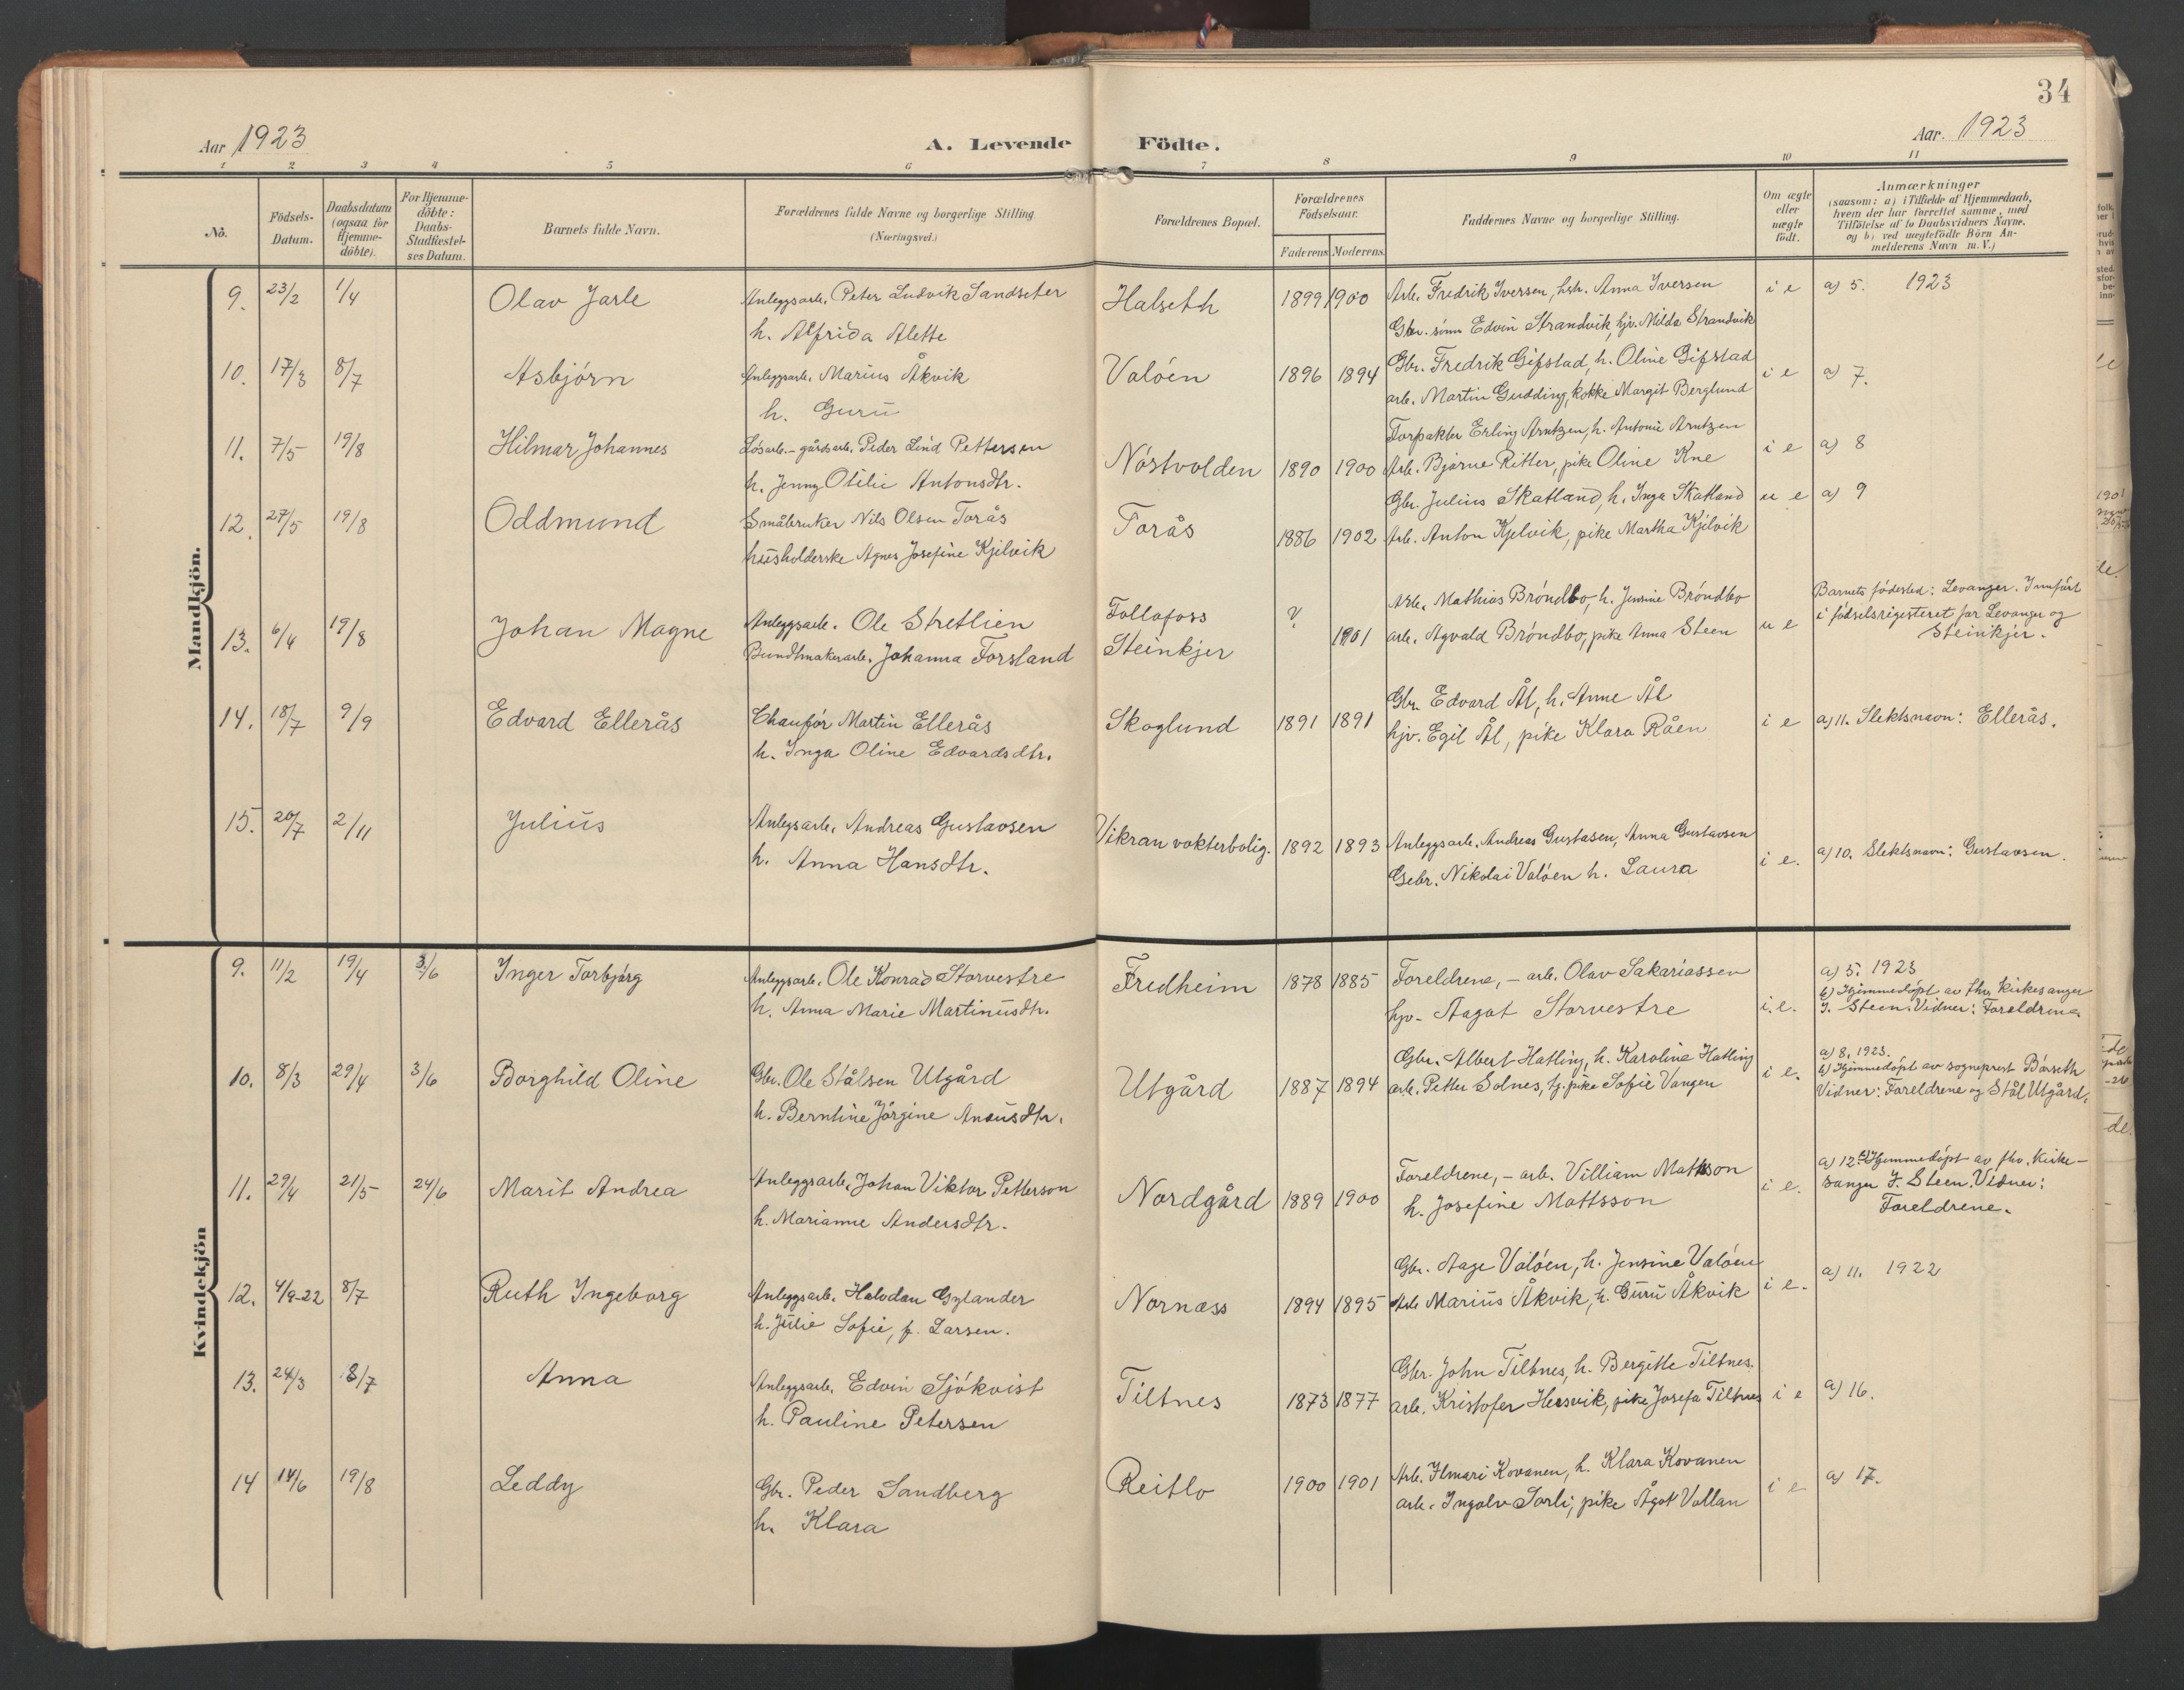 34
Aar 1923
A. Levende Födte.
Aar. 1923
1 2 3 4 5 6 7 8 9 10 11
No.
Födsels-Datum.
Daabsdatum (ogsaa for Hjemme-döbte).
For Hjemme-döbte: Daabs-Stadfæstel-ses Datum.
Barnets fulde Navn.
Forældrenes fulde Navne og borgerlige Stilling (Næringsvei.)
Forældrenes Bopæl.
Forældrenes Födselsaar.
Faderens Moderens
Faddernes Navne og borgerlige Stilling.
Om ægte eller uægte födt.
Anmærkninger
(saasom: a) i Tilfælde af Hjemmedaab,
hvem der har forrettet samme, med
Tilföielse af to Daabsvidners Navne.
og b) ved uægtefödte Börn An-
melderens Navn m. V.)
Mandkjön.
9. 23/2 1/4 Olav Jarle Anleggsarb. Peter Ludvik Sandseter Halseth 1899 1900 Arb. Fredrik Iversen, hstr. Anna Iversen i e a) 5. 1923
h. Alfrida Alette Gbr. sönn Edvin Strandvik, hjv. Milda Strandvik
10. 17/3 8/7 Asbjörn Anleggsarb. Marius Åkvik Valöen 1896 1894 Gbr. Fredrik Gifstad, h. Oline Gifstad i e a) 7.
h. Guru arb. Martin Gudding, kokke Margit Berglund
11. 7/5 19/8 Hilmar Johannes Lösarb.- gårdsarb. Peder Lind Pettersen Nöstvolden 1890 1900 Forpakter Erling Arntzen, h. Antonie Arntzen i e a) 8
h. Jenny Otilie Antonsdtr. Arb. Bjarne Ritter, pike Oline Kne
12. 27/5 19/8 Oddmund Småbruker Nils Olsen Forås Forås 1886 1902 Gbr. Julius Skatland, h. Inga Skatland u e a) 9
husholderske Agnes Josefine Kjelvik Arb. Anton Kjelvik, pike Martha Kjelvik
13. 6/4 19/8 Johan Magne Anleggsarb. Ole Stretlien Follafoss ? Arb. Mathias Bröndbo, h. Jensine Bröndbo u e Barnets födested: Levanger. Innfört
Bundtmakerarb. Johanna Forsland Steinkjer 1901 arb. Agvald Bröndbo, pike Anna Steen i födselsregisteret for Levanger og
Steinkjer.
14. 18/7 9/9 Edvard Ellerås Chauför Martin Ellerås Skoglund 1891 1891 Gbr. Edvard Ål, h. Anne Ål i e a) 11. Slektsnavn: Ellerås.
h. Inga Oline Edvardsdtr. hjv. Egil Ål, pike Klara Råen
15. 20/7 2/11 Julius Anlegsarb. Andreas Gustavsen Vikran vokterbolig. 1892 1893 Anleggsarb. Andreas Gustasen, Anna Gustavsen i e. a) 10. Slektsnavn: Gustavsen.
h. Anna Hansdtr. Gebr. Nikolai Valöen h. Laura
Kvindekjön
9. 11/2 19/4 3/6 Inger Torbjörg Anleggsarb. Ole Konrad Storvestre Fredheim 1878 1885 Foreldrene, - arb. Olav Sakariassen i. e. a) 5. 1923
h. Anna Marie Martinusdtr. hjv. Aagot Storvestre b) Hjemmedöpt av fhv. kirkesanger
J. Steen. Vidner: Foreldrene.
10. 8/3 29/4 3/6 Borghild Oline Gbr. Ole Stålsen Utgård Utgård 1887 1894 Gbr. Albert Hatling, h. Karoline Hatling i e. a) 8. 1923.
h. Berntine Jörgine Anausdtr. arb. Petter Solnes, tj. pike Sofie Vangen b) Hjemmedöpt av sogneprest Börseth
Vidner: Foreldrene og Stål Utgård.
11. 29/4 21/5 24/6 Marit Andrea Anleggsarb. Johan Viktor Petterson Nordgård 1889 1900 Foreldrene, - arb. Villiam Mattsson i e. a) 12. b) Hjemmedöpt av fhv. kirke-
h. Marianne Andersdtr. h. Josefine Mattsson sanger J. Steen. Vidner:
Foreldrene.
12. 4/9-22 8/7 Ruth Ingeborg Anleggsarb. Halvdan Gylander Nornæss 1894 1895 Gbr. Aage Valöen, h. Jensine Valöen i e. a) 11. 1922
h. Julie Sofie, f. Larsen. Arb Marius Åkvik, h. Guru Åkvik
13. 24/3 8/7 Anna Anleggsarb. Edvin Sjökvist Tiltnes 1873 1877 Gbr. John Tiltnes, h. Bergitte Tiltnes. i e a) 16.
h. Pauline Petersen arb. Kristofer Hersvik, pike Josefa Tiltnes
14 14/6 19/8 Leddy Gbr. Peder Sandberg Reitlo 1900 1901 Arb. Ilmari Kovanen, h. Klara Kovanen i e a) 17.
h. Klara arb. Ingolv Sorli, pike Ågot Vollan